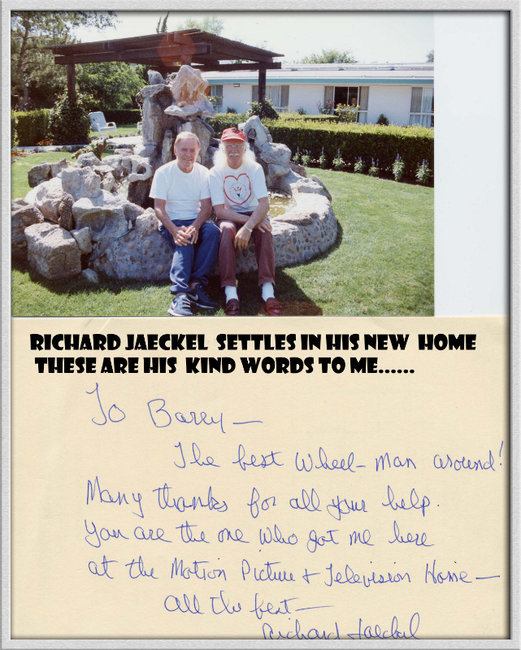 RICHARD JAECKEL SETTLES IN HIS NEW HOME
THESE ARE HIS KIND WORDS TO ME......
To Barry—
The best Wheel-man around!
Many thanks for all your help.
You are the one who got me here
at the Motion Picture & Television Home—
All the best—
Richard Jaeckel